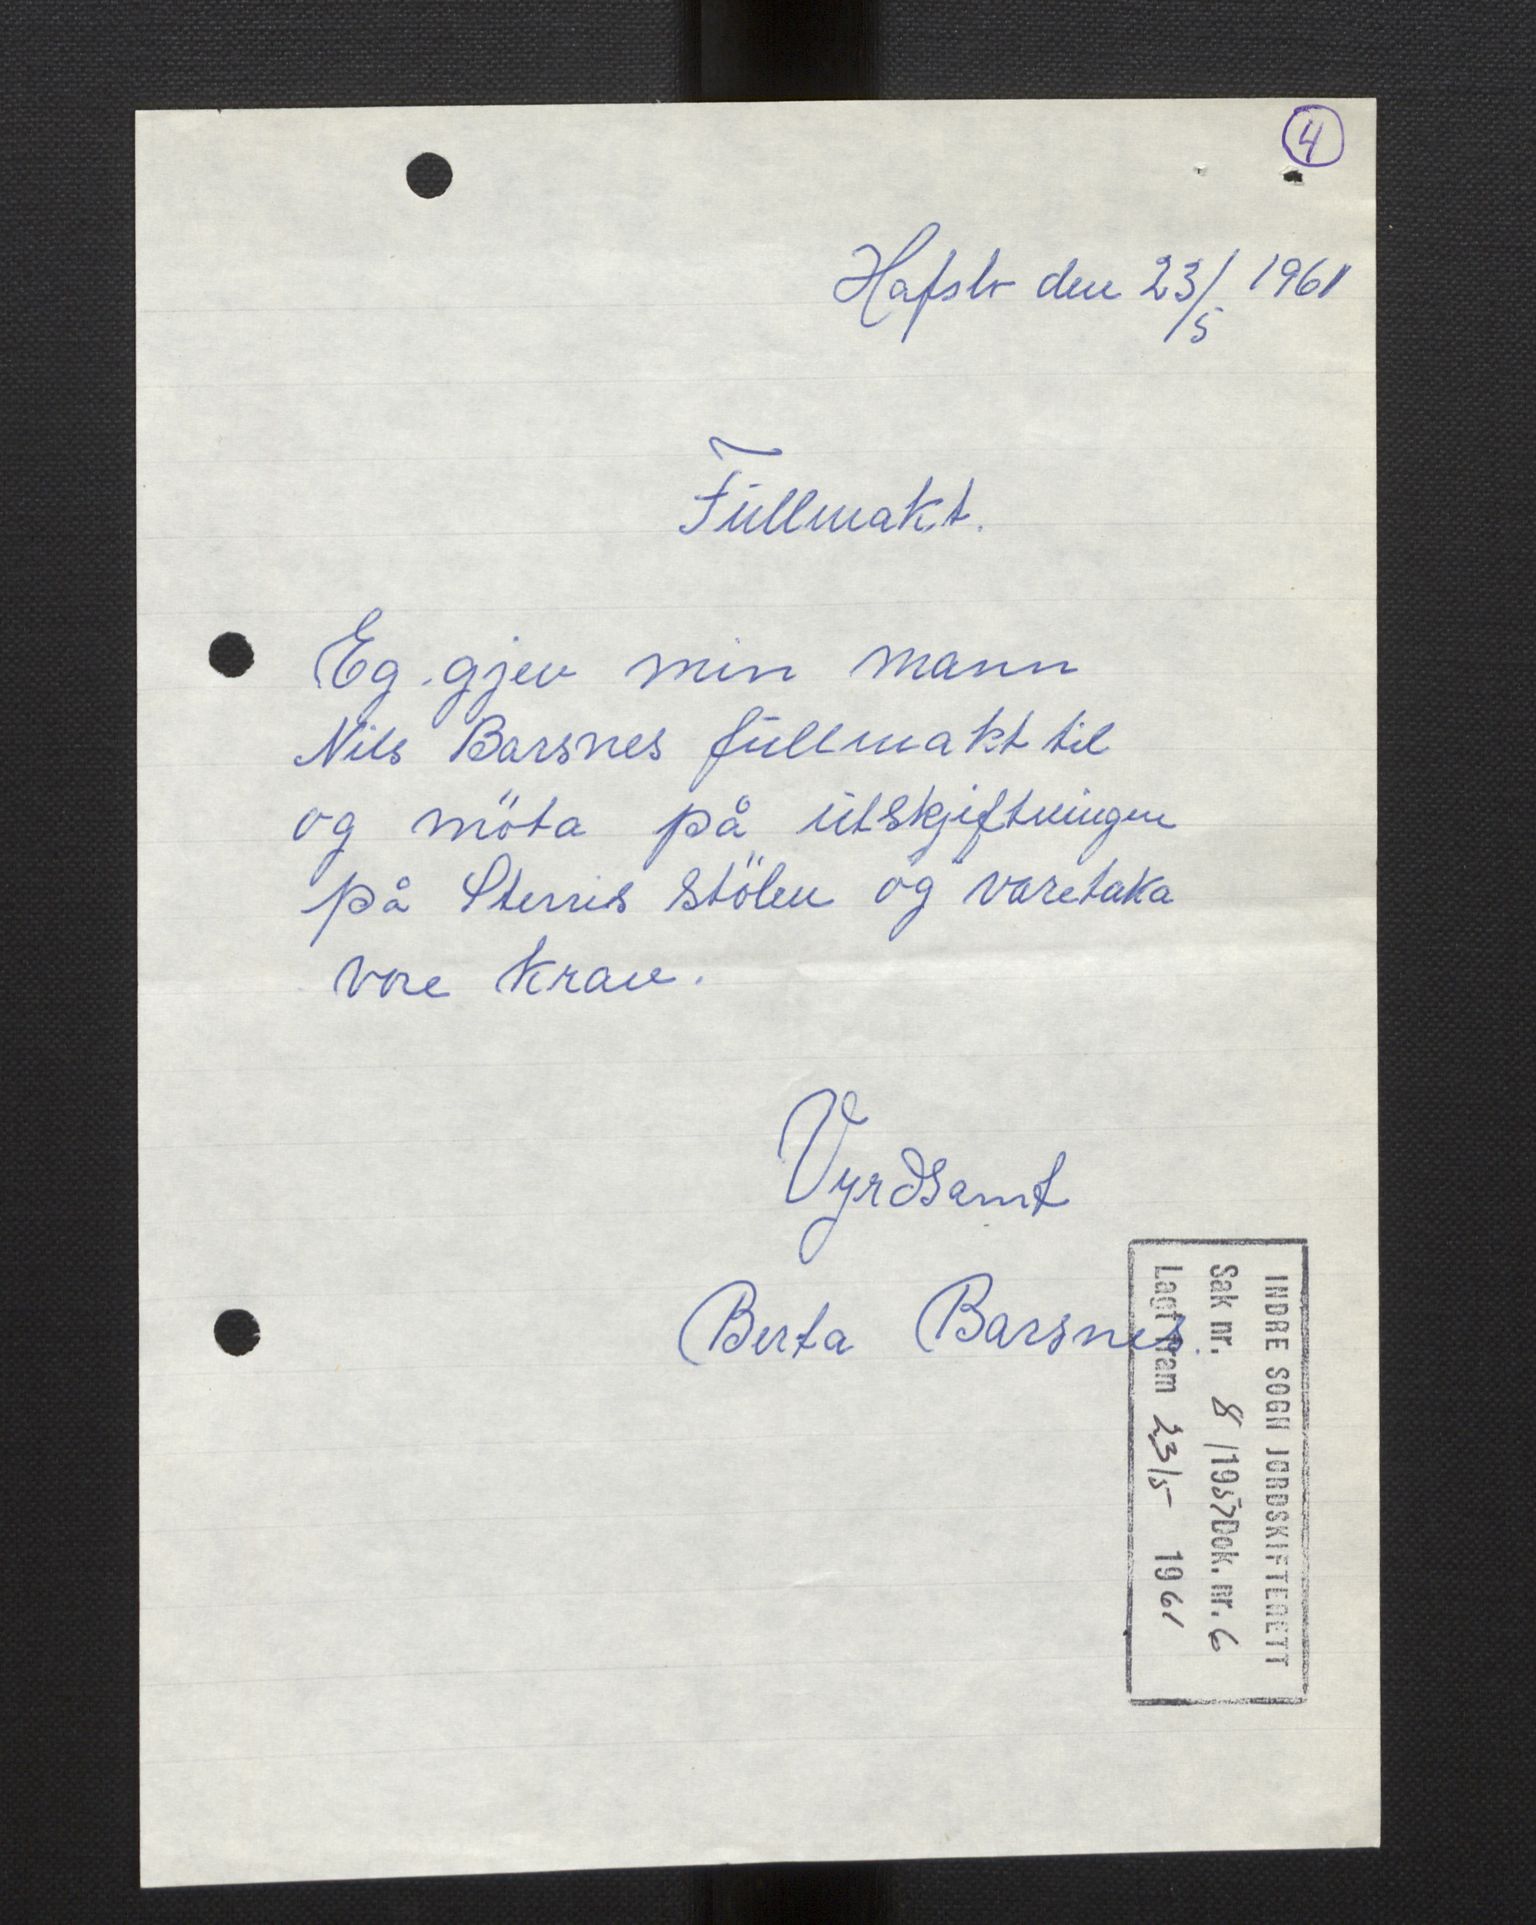 4
Hafslo den 23/5 1961
Fullmakt.
Eg gjev min mann
Nils Barsnes fullmakt til
og möta på utskjiftningen
på Sterris stölen og varetaka
vore krav.
Vyrdsamt
Berta Barsnes.
INDRE SOGN JORDSKIFTERETT
Sak nr. 8/1957 Dok. nr. 6
Lagt fram 23/5 1961